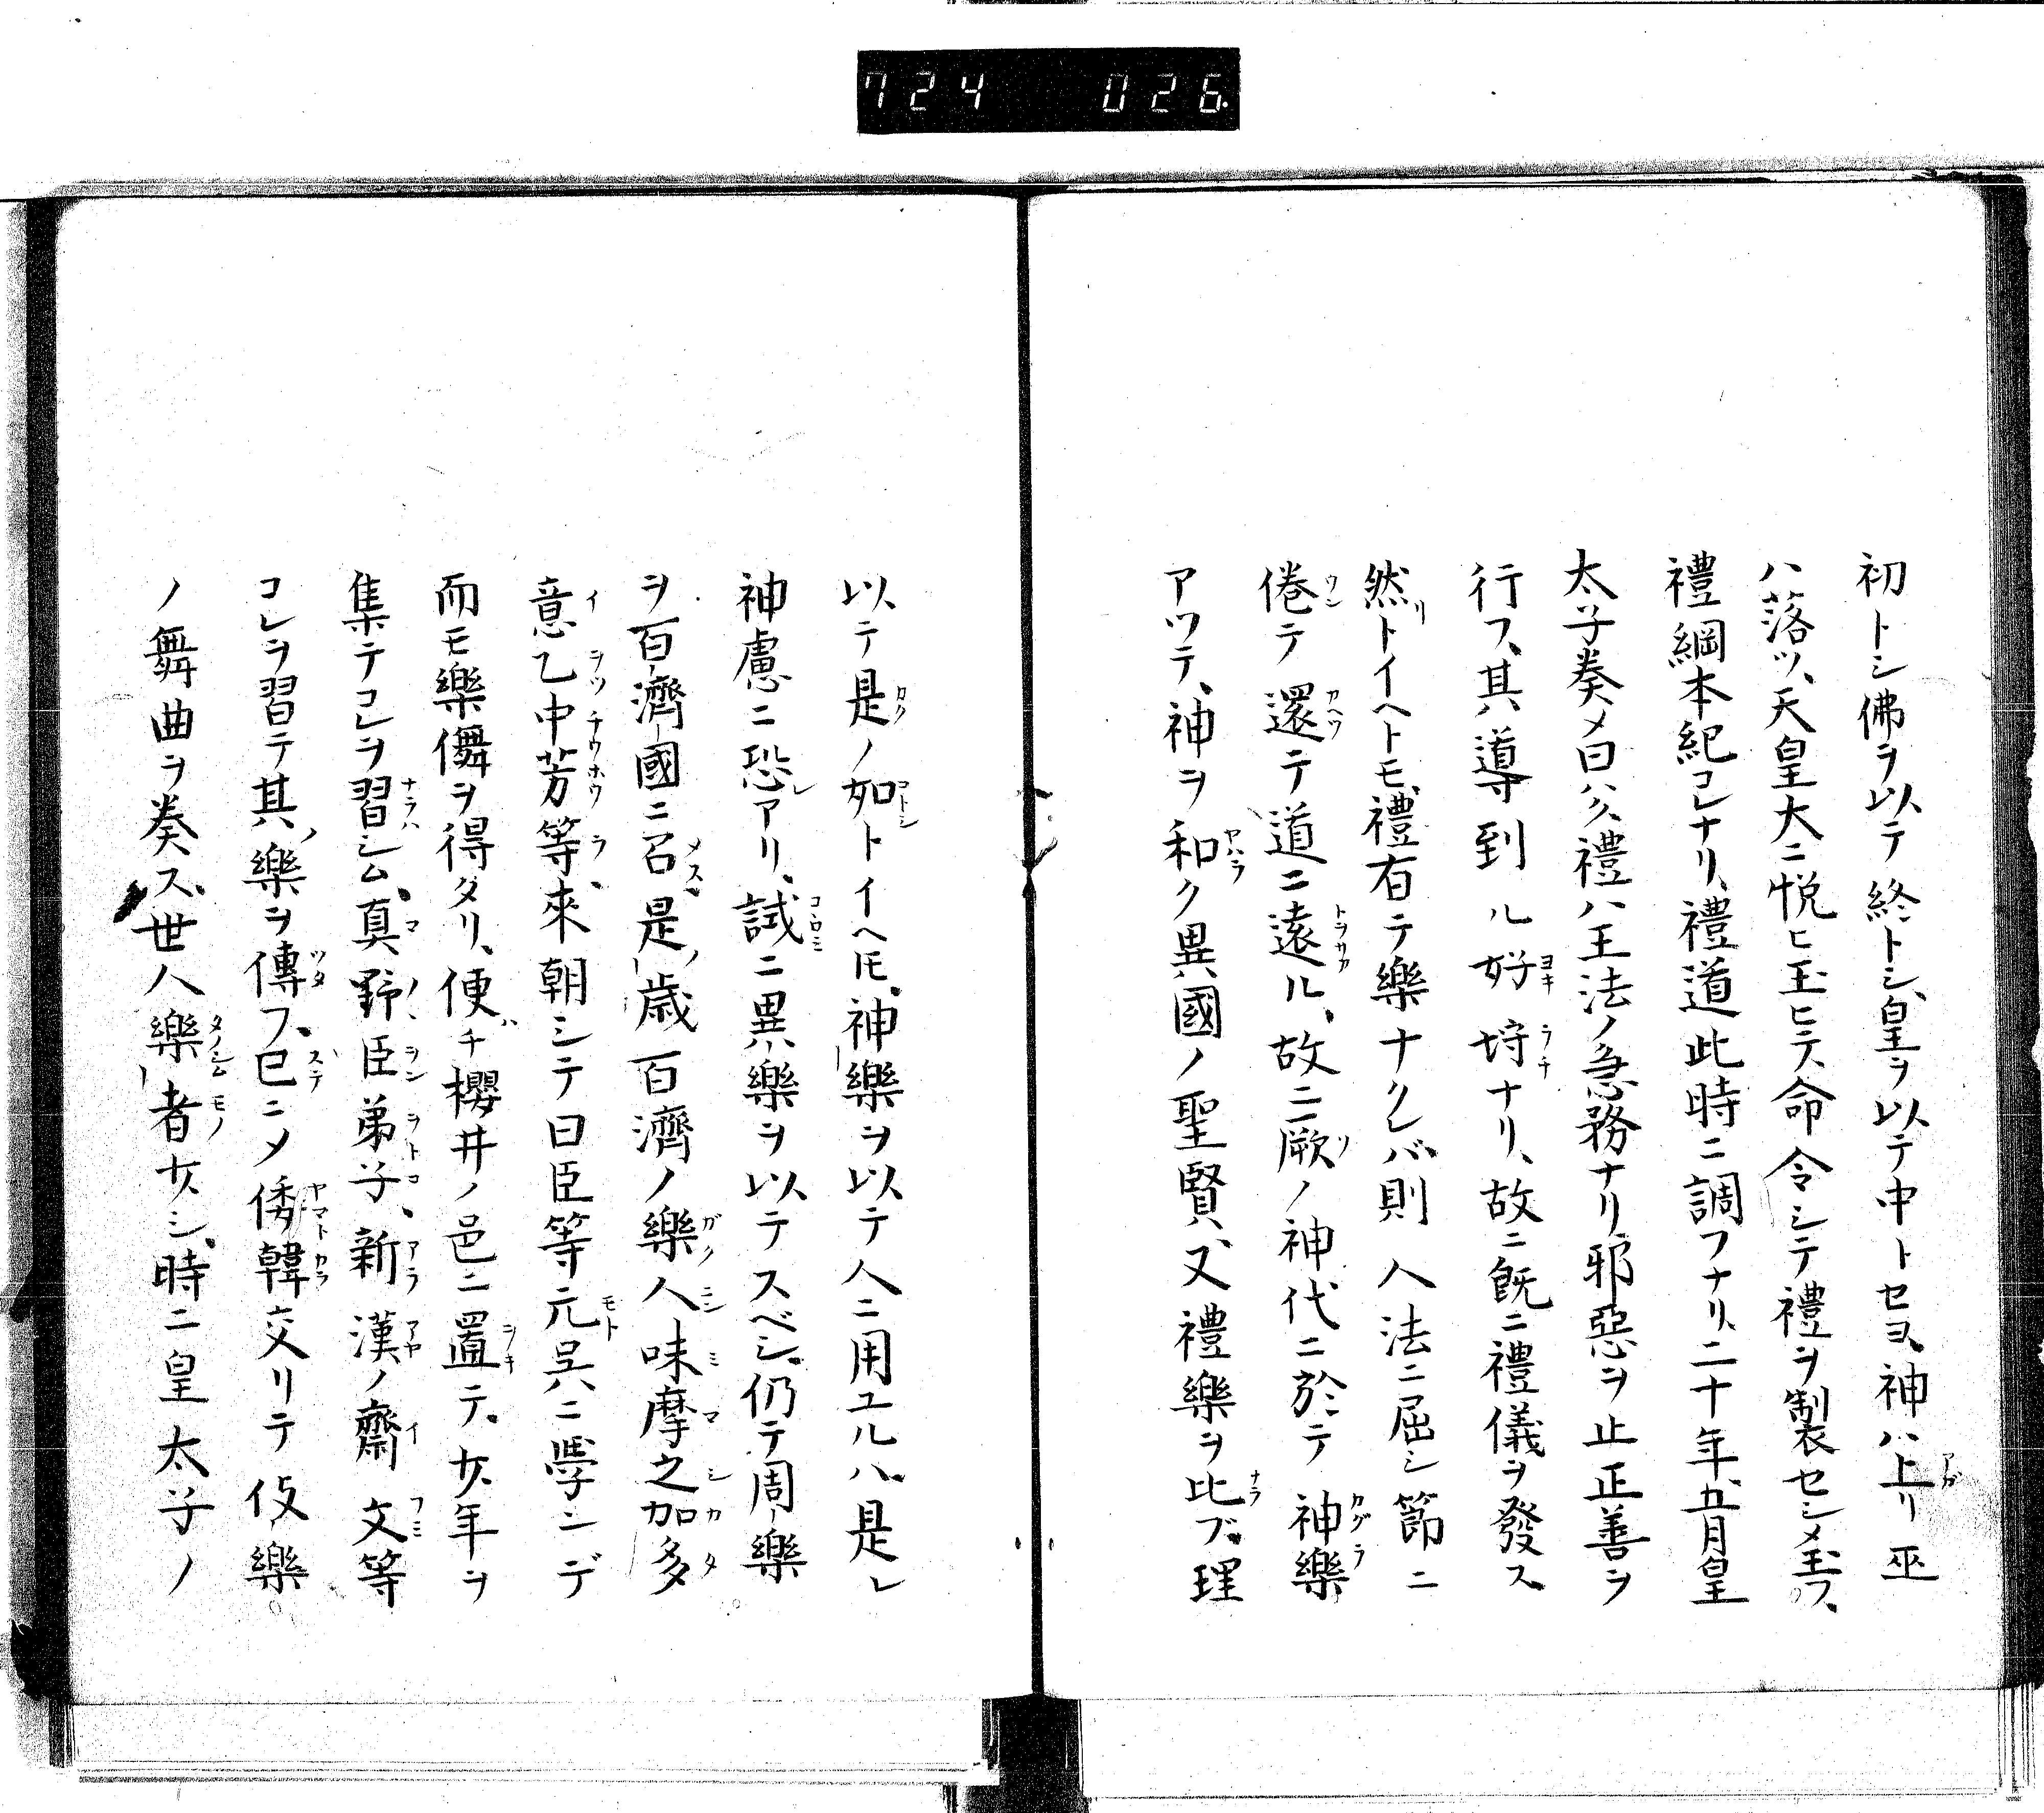 724 026
初トシ佛ヲ以テ終トシ、皇ヲ以テ中トセヨ、神ハ上リ巫
ハ落ツ、天皇大ニ悦ヒ玉ヒテ、命令シテ禮ヲ制セシメ玉フ、
禮綱本紀コレナリ、禮道此時ニ調フナリ、二十年、五月皇
太子奏メ曰ハク、禮ハ王法ノ急務ナリ、邪惡ヲ止正善ヲ
行フ、其導到ル好垨ナリ、故ニ既ニ禮儀ヲ發ス、
然トイヘトモ、禮有テ樂ナクレバ、則人法ニ屈シ節ニ
倦テ還テ道ニ遠ル、故ニ厥ノ神代ニ於テ神樂
アツテ、神ヲ和ク異國ノ聖賢、又禮樂ヲ比ブ、理
以テ是ノ如トイヘ𪜈、神樂ヲ以テ人ニ用ユルハ、是レ
神慮ニ恐アリ、試ニ異樂ヲ以テスベシ、仍テ周樂
ヲ百濟國ニ召、是歳百濟ノ樂人味摩之加多
意乙中芳等、來朝シテ曰臣等元呉ニ學ンデ
而モ樂儛ヲ得タリ、便チ櫻井ノ邑ニ置テ、少年ヲ
集テコレヲ習シム、真野臣弟子、新漢ノ齋文等
コレヲ習テ其樂ヲ傳フ、已ニメ倭韓交リテ伎樂
ノ舞曲ヲ奏ス、世人樂者少シ、時ニ皇太子ノ